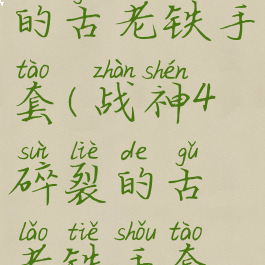 的古老铁手
tào zhàn shén
套(战神4
suì liè de gǔ
碎裂的古
lǎo tiě shǒu tào
老铁手套